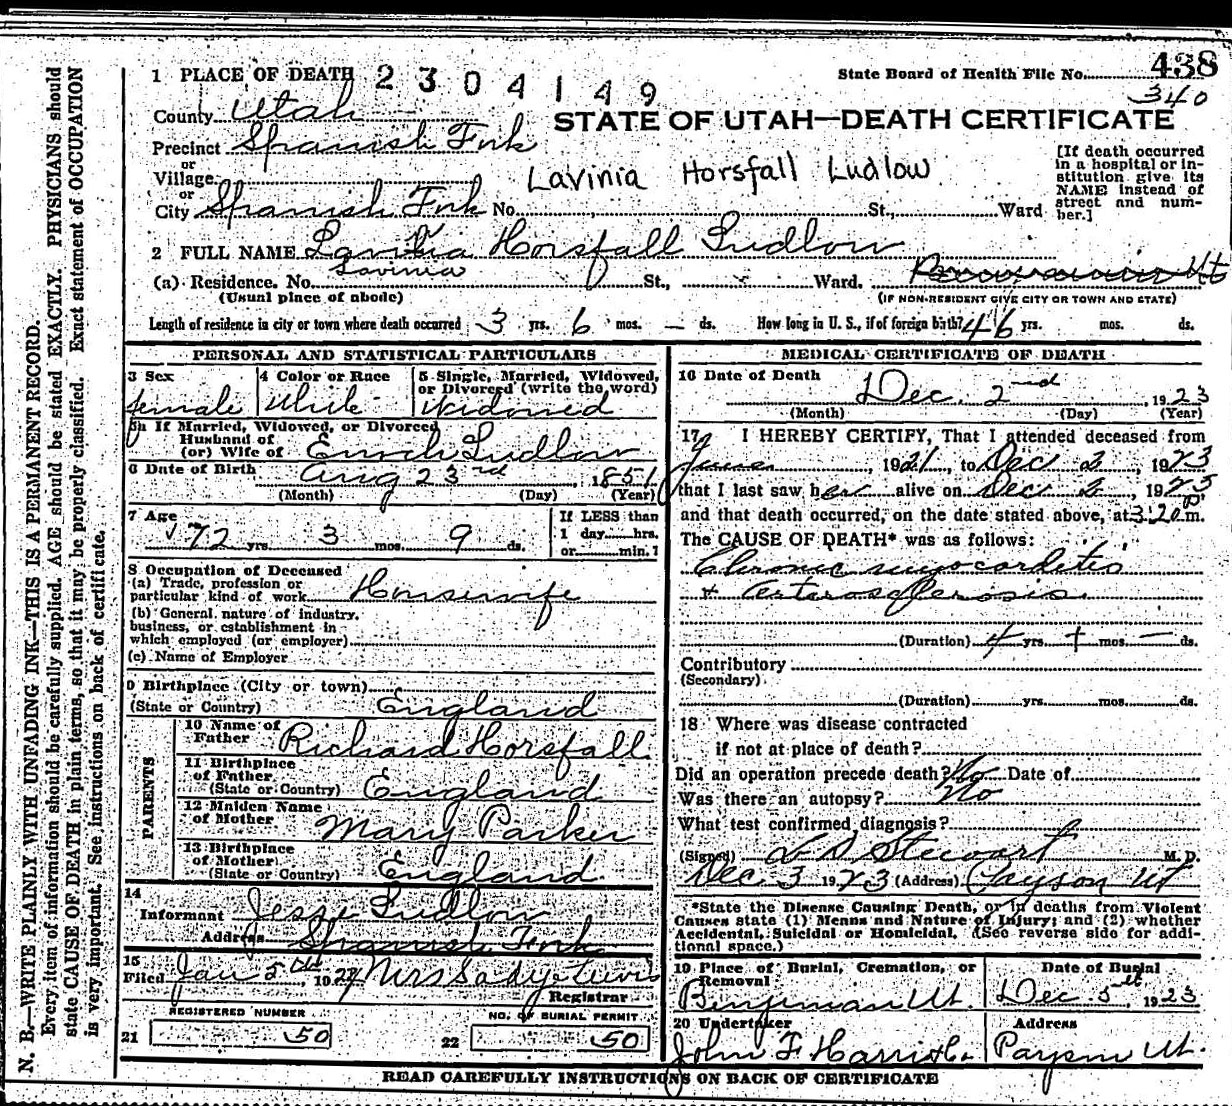 438
1 PLACE OF DEATH 2304149 State Board of Health File No.
340
County Utah
STATE OF UTAH—DEATH CERTIFICATE
Precinct Spanish Fork
or
Village
or
Lavinia Horsfall Ludlow
[If death occurred in a hospital or institution give its NAME instead of street and number.]
City Spanish Fork No. St., Ward
2 FULL NAME Horsfall Ludlow
Lavinia
(a) Residence. No. St., Ward. Ut
(Usual place of abode) (IF NON-RESIDENT GIVE CITY OR TOWN AND STATE)
Length of residence in city or town where death occurred 3 yrs. 6 mos. — ds. How long in U. S., if of foreign birth? 46 yrs. mos. ds.
PERSONAL AND STATISTICAL PARTICULARS
3 Sex female
4 Color or Race White
5 Single, Married, Widowed, or Divorced (write the word) Widowed
5a If Married, Widowed, or Divorced
Husband of
(or) Wife of Enoch Ludlow
6 Date of Birth Aug 23rd, 1851
(Month) (Day) (Year)
7 Age 72 yrs. 3 mos. 9 ds.
If LESS than
1 day hrs.
or min.?
8 Occupation of Deceased
(a) Trade, profession or
particular kind of work Housewife
(b) General nature of industry,
business, or establishment in
which employed (or employer)
(c) Name of Employer
9 Birthplace (City or town)
(State or Country) England
PARENTS
10 Name of Father Richard Horsfall
11 Birthplace of Father
(State or Country) England
12 Maiden Name of Mother Mary Parker
13 Birthplace of Mother
(State or Country) England
14
Informant Jesse Ludlow
Address Spanish Fork
15
Filed Jan 5th, 1924 Mrs Sadye Lewis
Registrar
REGISTERED NUMBER
21 50
NO. OF BURIAL PERMIT
22 50
MEDICAL CERTIFICATE OF DEATH
16 Date of Death Dec. 2nd, 1923
(Month) (Day) (Year)
17 I HEREBY CERTIFY, That I attended deceased from
June, 1921, to Dec 2, 1923
that I last saw her alive on Dec 2, 1923
and that death occurred, on the date stated above, at 3:20 p m.
The CAUSE OF DEATH* was as follows:
Chronic myocarditis
+ Arterosclerosis
(Duration) 4 yrs. + mos. — ds.
Contributory
(Secondary)
(Duration) yrs. mos. ds.
18 Where was disease contracted
if not at place of death?
Did an operation precede death? No Date of
Was there an autopsy? No
What test confirmed diagnosis?
(Signed) L D Stewart M. D.
Dec 3 1923 (Address) Payson Ut
*State the Disease Causing Death, or in deaths from Violent
Causes state (1) Means and Nature of Injury; and (2) whether
Accidental, Suicidal or Homicidal. (See reverse side for addi-
tional space.)
19 Place of Burial, Cremation, or Removal
Benjiman Ut.
Date of Burial
Dec 5th, 1923
20 Undertaker
John F
Address
Payson Ut.
READ CAREFULLY INSTRUCTIONS ON BACK OF CERTIFICATE
N. B.—WRITE PLAINLY WITH UNFADING INK—THIS IS A PERMANENT RECORD.
Every item of information should be carefully supplied. AGE should be stated EXACTLY. PHYSICIANS should
state CAUSE OF DEATH in plain terms, so that it may be properly classified. Exact statement of OCCUPATION
is very important. See instructions on back of certificate.